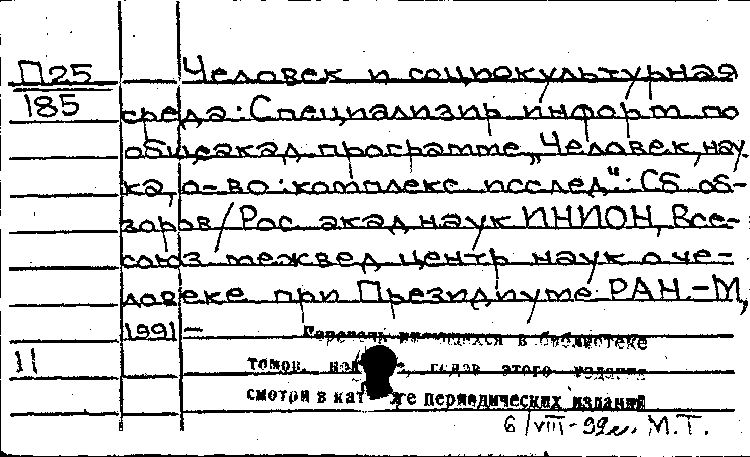 П25 Человек и социокультурная
185 среда: Специализир информ по
общеакад. программе „Человек, нау-
ка, о-во: комплекс исслед": Сб об-
зоров/Рос акад наук ИНИОН, Все-
союз межвед центр наук о че-
ловеке при Президиуме РАН.-М,
1991-
Перечень имеющихся в библиотеке
11
томов, годов этого издания
смотри в же периодических изданий
6/VIII-92г. М.Т.